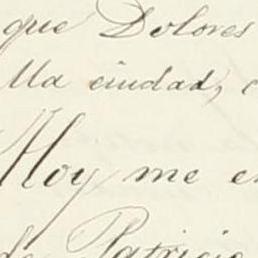 que Dolores
lla ciudad,
Hoy me
de Patricio